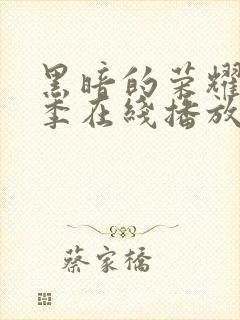 黑暗的荣耀
季在线播放
蔡家橋